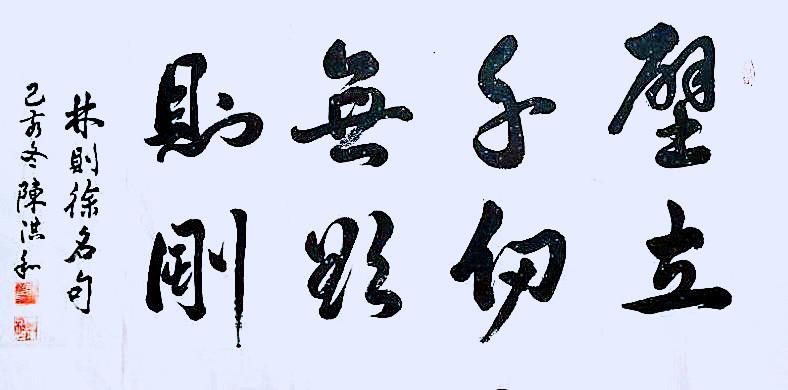 壁立
千仞
無欲
則剛
林則徐名句
己亥冬陳洪和